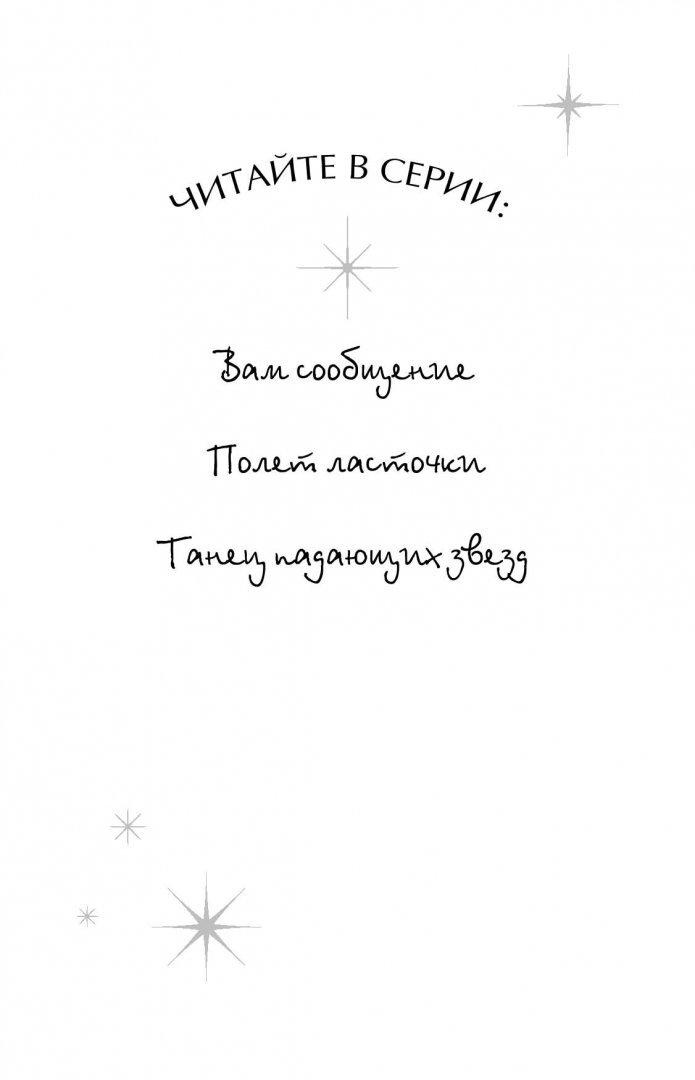 ЧИТАЙТЕ В СЕРИИ:
Вам сообщение
Полет ласточки
Танец падающих звезд